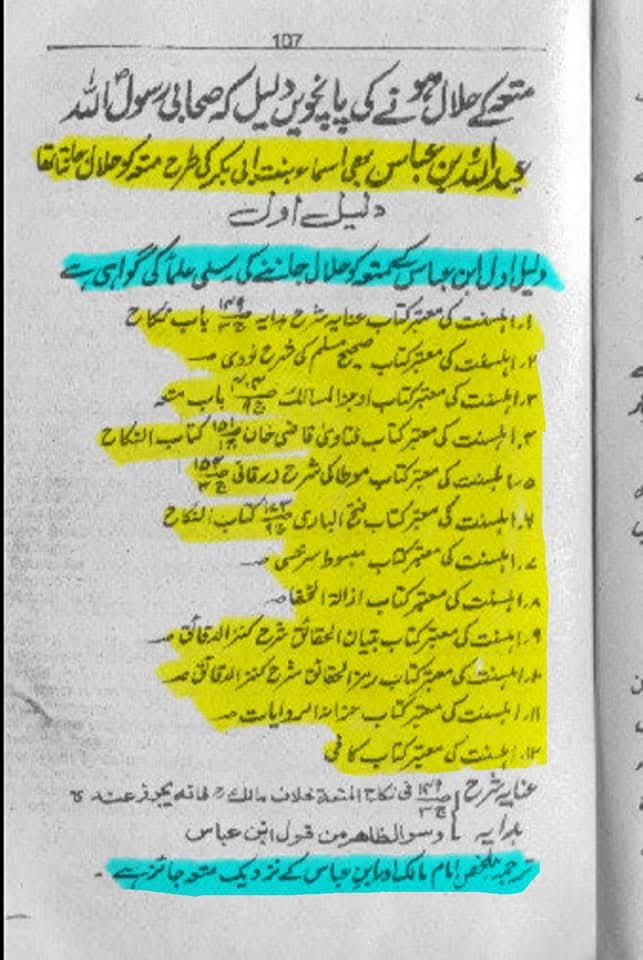 107
متعہ کے حلال ہونے کی پانچویں دلیل کہ صحابی رسولؐ اللہ
عبداللہ بن عباس بھی اسماء بنت ابی بکر کی طرح متعہ کو حلال جانتا تھا
دلیل اول
دلیل اول ابن عباس کے متعہ کو حلال جاننے کی سنی علماء کی گواہی ہے
۱۔ اہلسنت کی معتبر کتاب عنایہ شرح ہدایہ ص۱۴۹ ج۳ باب نکاح
۲۔ اہلسنت کی معتبر کتاب صحیح مسلم کی شرح نووی ص
۳۔ اہلسنت کی معتبر کتاب اوجز المسالک ص۴۰۴ ج۹ باب متعہ
۴۔ اہلسنت کی معتبر کتاب فتاویٰ قاضی خان ص۱۵۱ ج۱ کتاب النکاح
۵۔ اہلسنت کی معتبر کتاب موطا کی شرح زرقانی ص۱۵۴ ج۳
۶۔ اہلسنت کی معتبر کتاب فتح الباری ص۱۷۳ ج۹ کتاب النکاح
۷۔ اہلسنت کی معتبر کتاب مبسوط سرخسی ص
۸۔ اہلسنت کی معتبر کتاب ازالۃ الخفا ص
۹۔ اہلسنت کی معتبر کتاب تبیان الحقائق شرح کنز الدقائق ص
۱۰۔ اہلسنت کی معتبر کتاب رمز الحقائق شرح کنز الدقائق ص
۱۱۔ اہلسنت کی معتبر کتاب خزانۃ الروایات ص
۱۲۔ اہلسنت کی معتبر کتاب کافی
عنایہ شرح ص۱۴۹ ج۳ فی نکاح المتعۃ خلاف مالک فانہ یجوز عندہ
ہدایہ وہو الظاہر من قول ابن عباس
ترجمہ ملخص امام مالک اور ابن عباس کے نزدیک متعہ جائز ہے۔